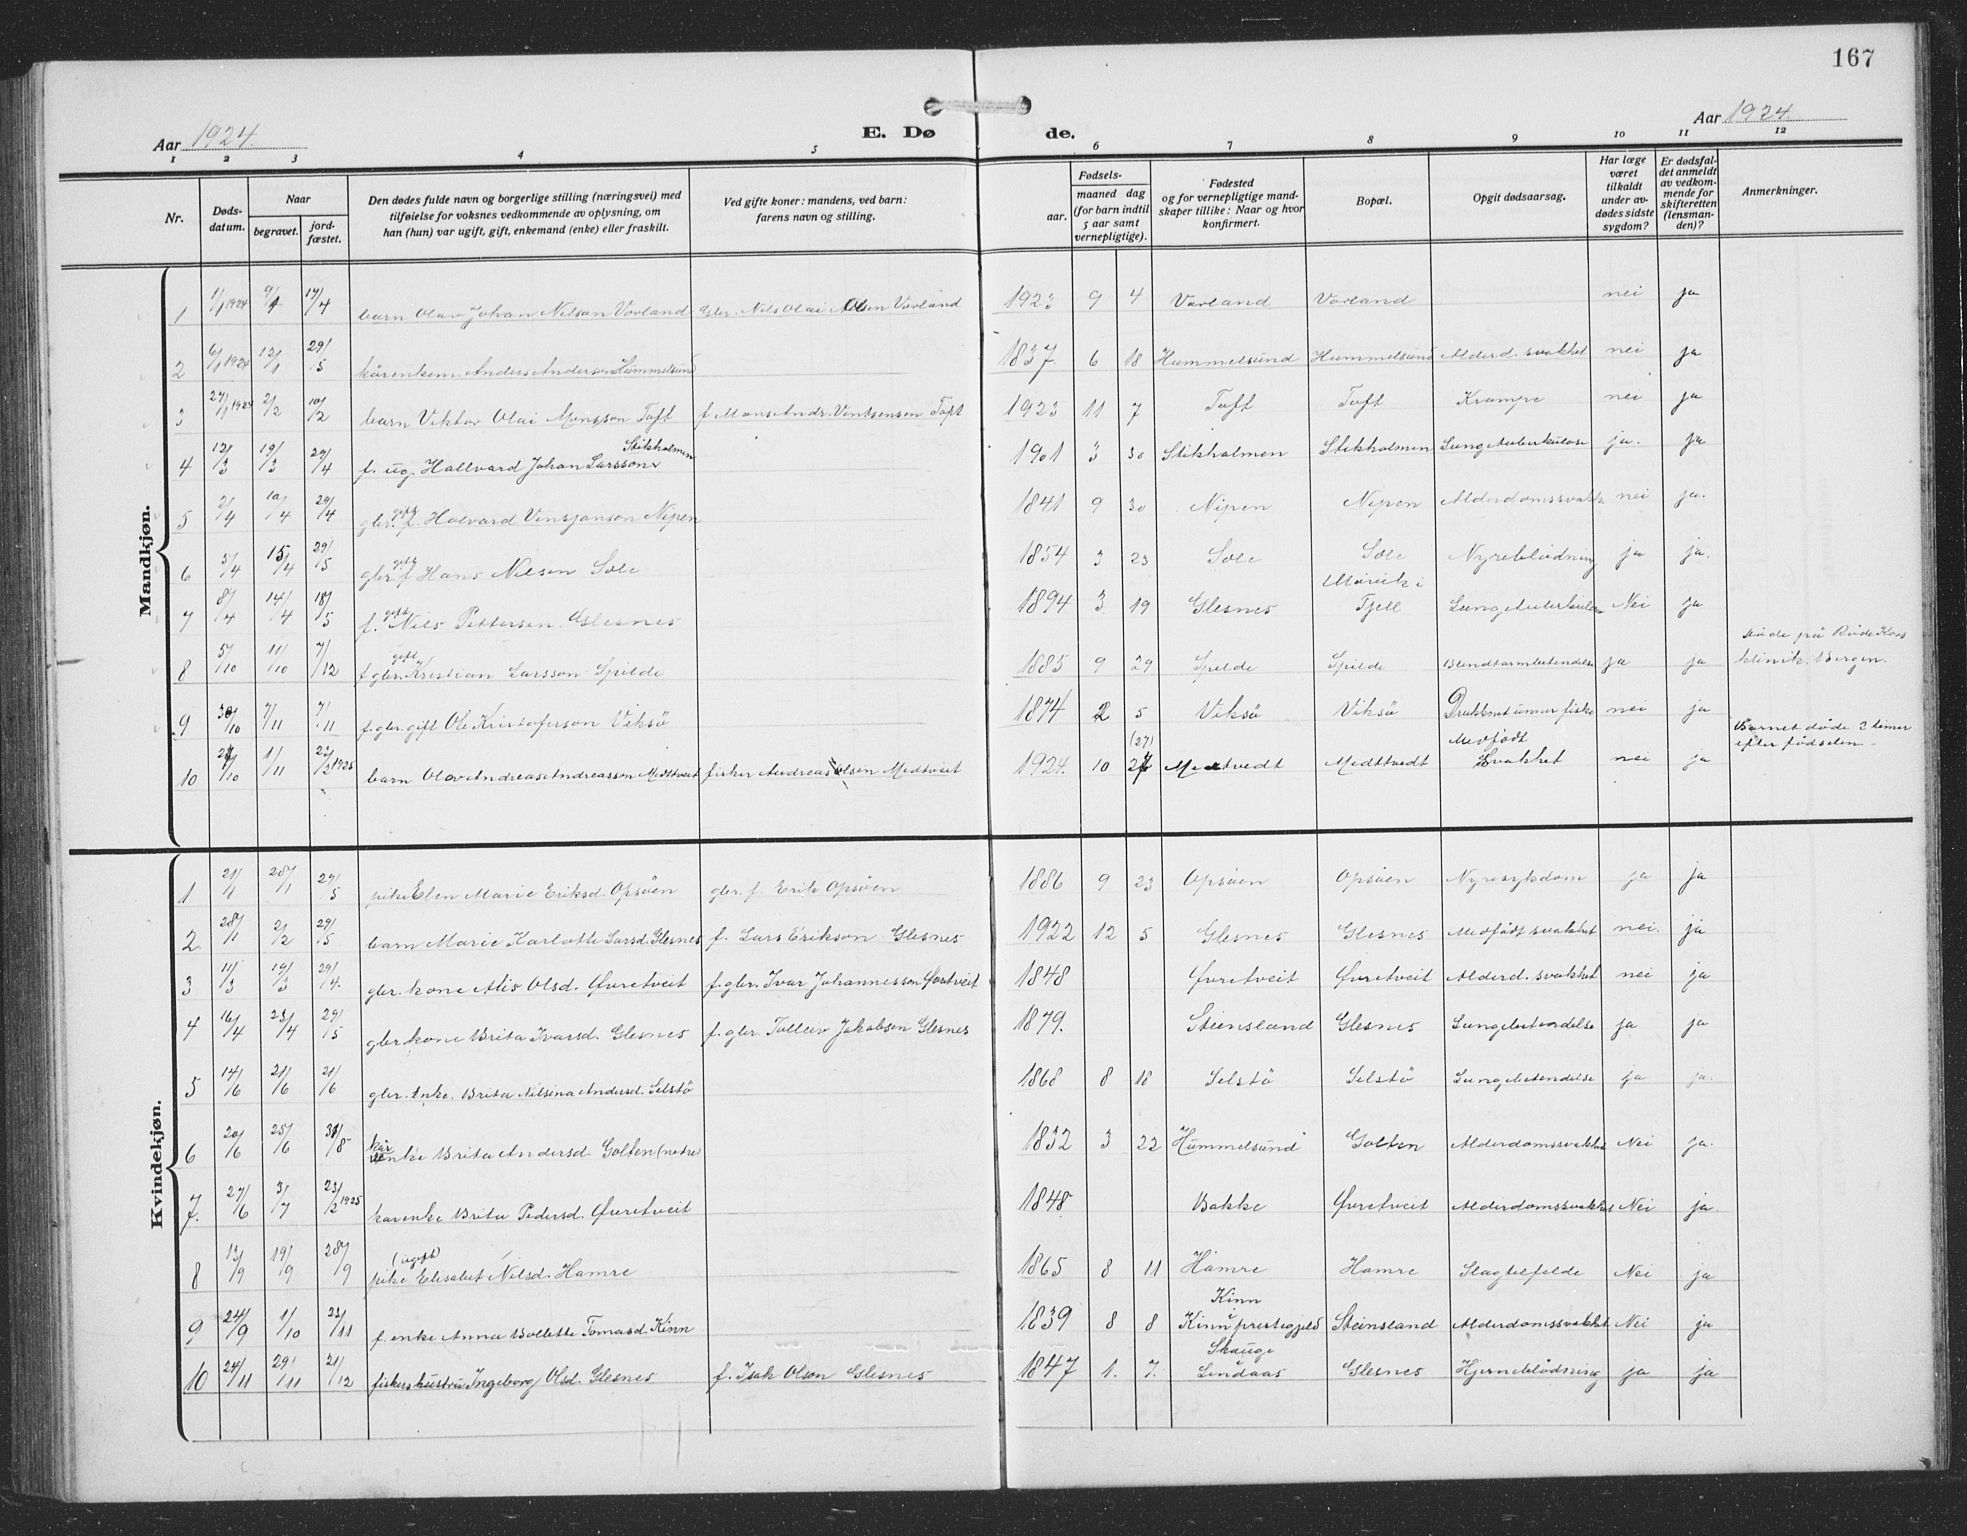 167
Aar 1924.
E. Dø de.
Aar 1924.
1 2 3 4 5 6 7 8 9 10 11 12
Nr.
Døds-
datum.
Naar
begravet.
jord-
fæstet.
Den dødes fulde navn og borgerlige stilling (næringsvei) med
tilføielse for voksnes vedkommende av oplysning, om
han (hun) var ugift, gift, enkemand (enke) eller fraskilt.
Ved gifte koner: mandens, ved barn:
farens navn og stilling.
Fødsels-
aar.
maaned dag
(for barn indtil
5 aar samt
vernepligtige).
Fødested
og for vernepligtige mand-
skaper tillike: Naar og hvor
konfirmert.
Bopæl.
Opgit dødsaarsag.
Har læge
været
tilkaldt
under av-
dødes sidste
sygdom?
Er dødsfal-
det anmeldt
av vedkom-
mende for
skifteretten
(lensman-
den)?
Anmerkninger.
Mandkjøn.
1 1/1 1924 9/1 17/4 barn Olav Johan Nilsen Vorland Gbr. Nils Olai Olsen Vorland 1923 9 4 Vorland Vorland nei ja
2 6/1 1924 12/1 29/5 kårenkem. Anders Anderson Hummelsund 1837 6 18 Hummelsund Hummelsund Alderd. svakhet nei ja
3 27/1 1924 2/2 10/2 barn Viktor Olai Monsson Toft f. Mons Andr. Vintsensen Toft 1923 11 7 Toft Toft Krampe nei ja
Stikholmen
4 12/3 19/3 29/4 f. ug. Hallvard Johan Larsson 1901 3 30 Stikholmen Stikholmen Lungetuberkulose ja. ja
gift
5 2/4 10/4 29/4 gbr. f. Halvard Vinsjanson Nipen 1841 9 30 Nipen Nipen Alderdomssvakh. nei ja.
gift
6 5/4 15/4 29/5 gbr. f Hans Nilsen Sæle 1854 3 23 Sæle Sæle Nyreblødning ja ja.
gift
7 8/4 14/4 18/5 f. Nils Pettersen Glesnes 1894 3 19 Glesnes Fjell Lungetuberkulose Nei ja
gift
8 5/10 11/10 7/12 f. gbr. Kristian Larsson Spilde 1885 9 29 Spilde Spilde Blindtarmbetendelse ja ja døde på Røde Kors
klinik, Bergen.
9 30/10 7/11 7/11 f. gbr. gift Ole Kristoferson Viksö 1874 2 5 Viksö Viksö Druknet under fiske nei ja
(27) Medfödt Barnet døde 2 timer
efter födselen
10 27/10 1/11 22/2 1925 barn Olav Andreas Andreassen Medtveit fisker Andreas Olsen Medtveit 1924. 10 27 Medtvedt Medttvedt Svakhet nei ja
Kvindekjøn.
1 21/1 28/1 29/5 pike Elen Marie Eriksd. Opsöen gbr. f. Erik Opsöen 1886 9 23 Opsöen Opsöen Nyresykdom ja ja
2. 28/1 2/2 29/5 barn Marie Karlotte Larsd. Glesnes f. Lars Erikson Glesnes 1922 12 5 Glesnes Glesnes Medfödt svakhet nei. ja
3 11/3 19/3 29/4. gbr. kone Alis Olsd. Øvretveit f. gbr. Ivar Johannesson Øvretveit 1848 Øvretveit Øvretveit Alderd. svakhet nei ja
4 16/4 23/4 29/5 gbr kone Brita Ivarsd. Glesnes f. gbr Tollev Jakobson Glesnes 1879. Steinsland Glesnes Lungebetendelse ja ja
5 14/6 21/6 21/6 gbr. Enke. Brita Nilsina Andersd. Selstö 1868 8 18 Selstö Selstö Lungebetendelse ja ja.
kår
6 20/6 25/6 31/8 enke Brita Andersd. Golten (nedre) 1832 3 22 Hummelsund Golten Alderdomssvakhet Nei ja.
7. 27/6 3/7 23/2 1925 kårenke Brita Pedersd. Øvretveit 1848 Bakke Øvretveit Alderdomssvakhet Nei ja.
(ugift)
8 13/9 19/9 28/9 pike Elisabet Nilsd. Hamre 1865 8 11 Hamre Hamre Slagtilfelde Nei ja
Kinn
9 24/9 1/10 23/11 f. enke Anna Bollette Tomasd. Kinn 1839 8 8 Kinn prestegjeld Steinsland Alderdomssvakhet Nei ja
Skauge
i
10 24/11 29/11 21/12 fiskershustru Ingeborg Olsd. Glesnes f. Isak Olson Glesnes 1847 1. 7. Lindaas Glesnes Hjerneblödning ja ja